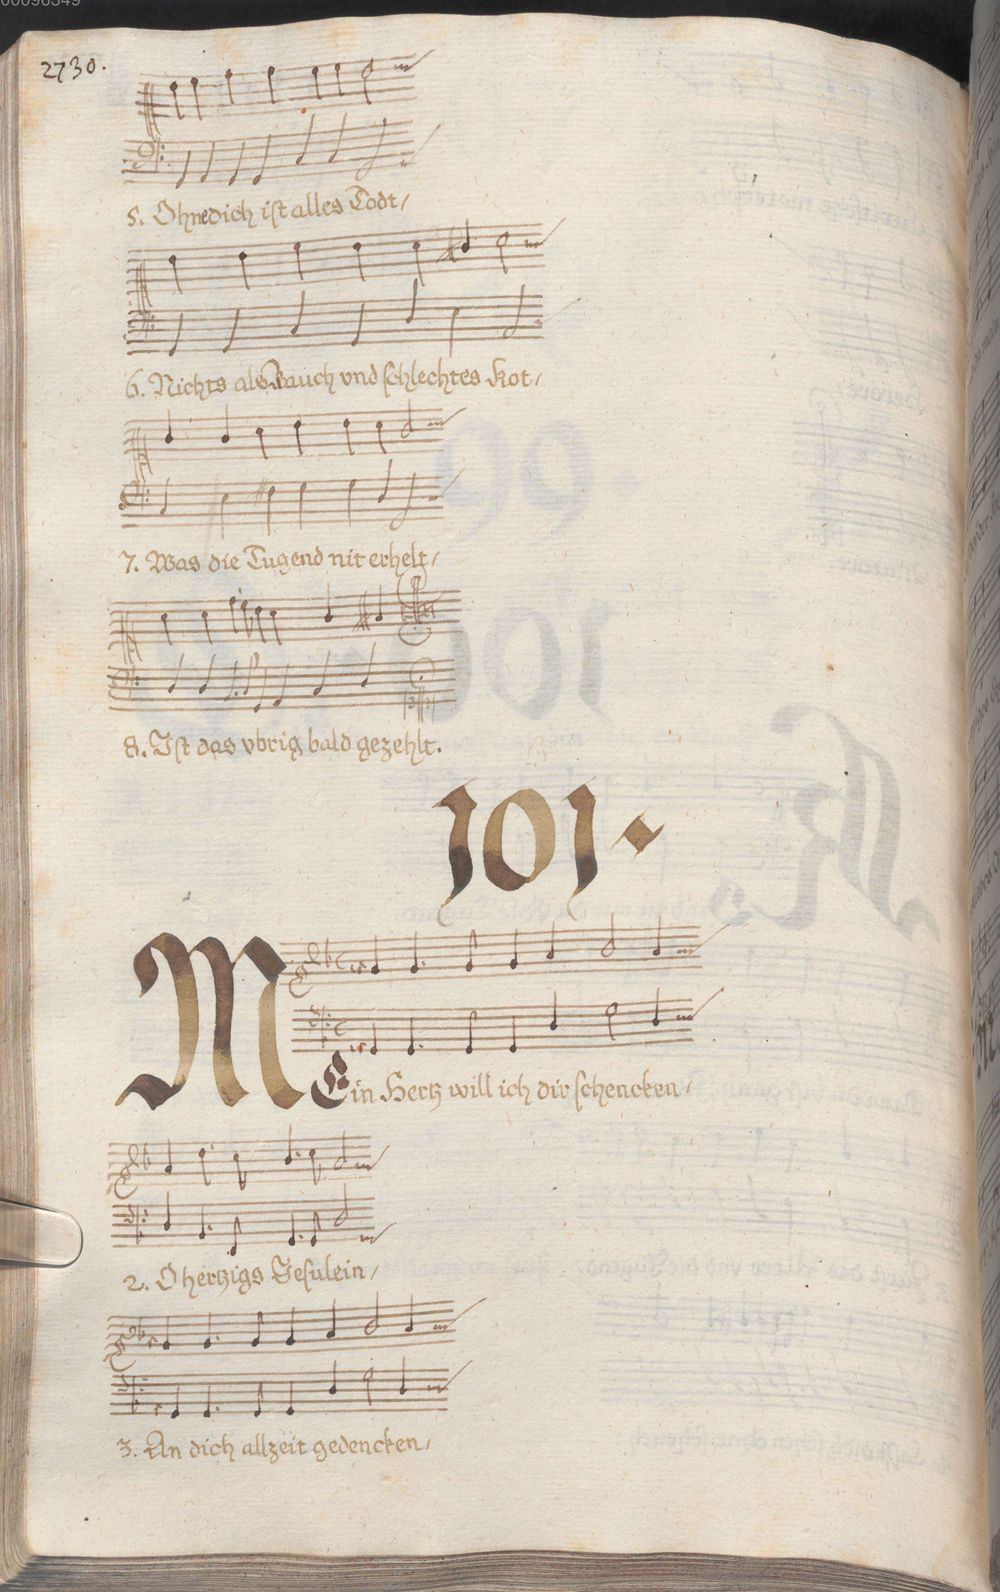 00096349
2730.
5. Ohne dich ist alles Todt/
6. Nichts als Rauch vnd schlechtes Kot/
7. Was die Tugend nit erhelt/
8. Ist das vbrig bald gezehlt.
101.
MEin Hertz will ich dir schencken/
2. O hertzigs Jesulein/
3. An dich allzeit gedencken/